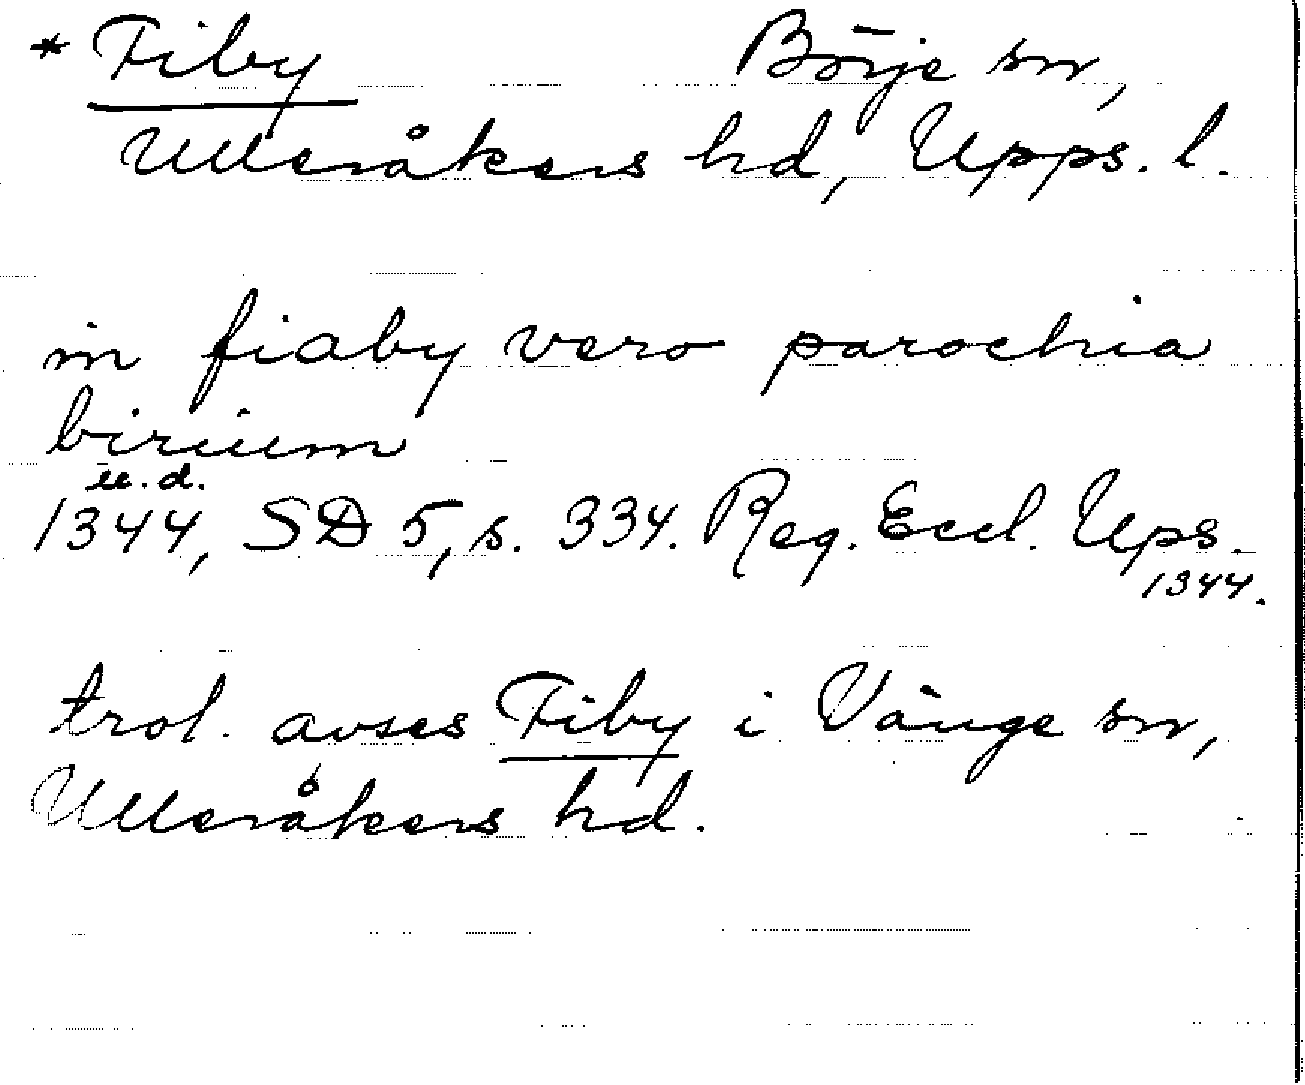 * Fiby Börje sn,
Ulleråkers hd, Upps. l.
in fiaby vero parochia
birium
u.d.
1344, SD 5, s. 334. Reg. Eccl. Ups.
1344.
trol. avses Fiby i Vänge sn,
Ulleråkers hd.